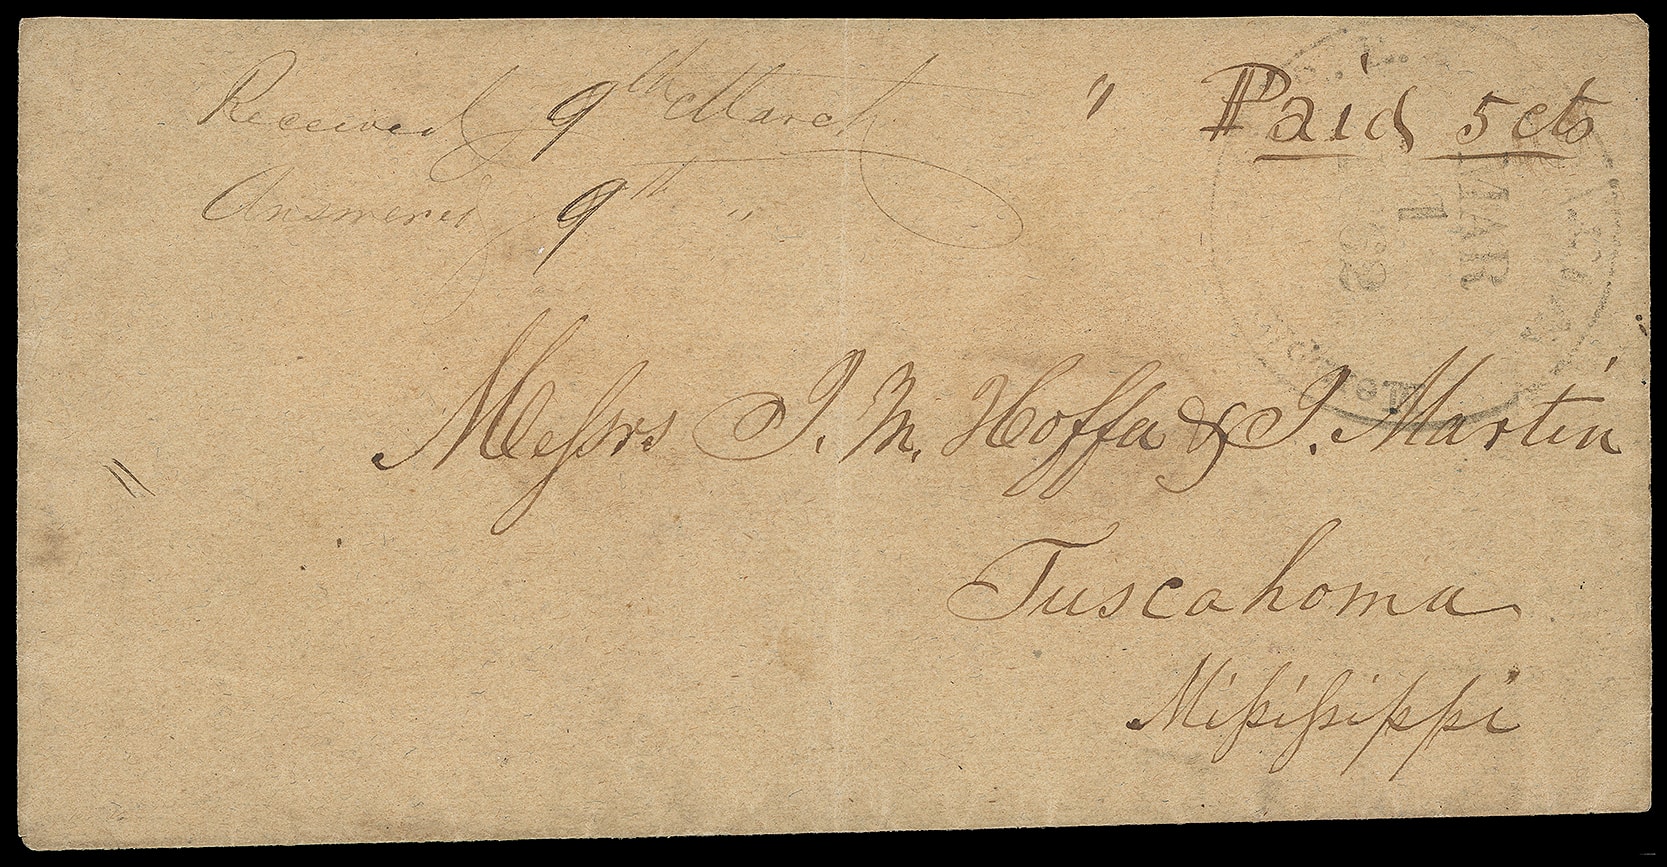 Received 9th March " Paid 5 cts
Answered 9th "
MAR
1
Messrs J. M. Hoffa & J. Martin
Tuscahoma
Mississippi